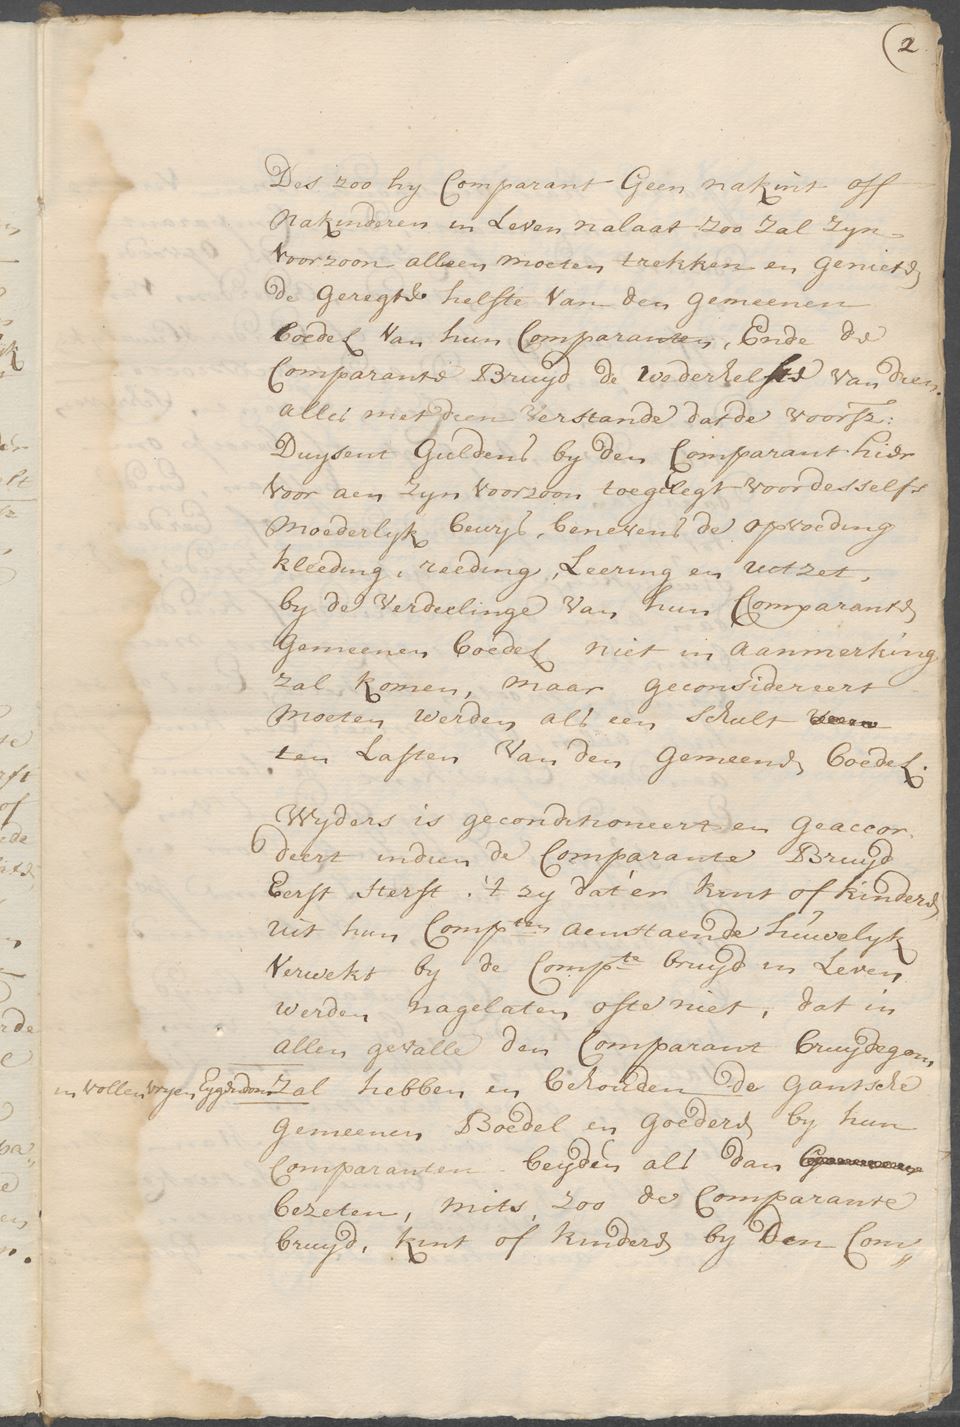 2
Des zoo hy Comparant Geen nakint off
Nakinderen in Leven nalaat zoo zal zyn
voorzoon alleen moeten trekken en genieten
de geregte helfte van den gemeenen
boedel van hun Comparanten, Ende de
Comparante Bruyd de wederhelfte van dien.
alles met dien verstande dat de voorsz:
Duysent Guldens by den Comparant hier
voor aen zyn voorzoon toegelegt voor desselfs
Moederlyk bewys, benevens de opvoeding
kleeding, reeding, Leering en uitzet,
by de verdeelinge van hun Comparanten
gemeenen boedel niet in aanmerking
zal komen, maar geconsidereert
moeten werden als een schult
ten Lasten van den gemeenen boedel.
Wyders is geconditioneert en geaccor
deert indien de Comparante Bruyd
Eerst sterft 't zy dat er kint of kinderen
uit hun Compten aenstaende huwelyk
verwekt by de Compte bruyd in Leven
werden nagelaten ofte niet, dat in
allen gevalle den Comparant bruydegom
in vollen vryen Eygendom zal hebben en behouden de gantsche
gemeenen Boedel en goederen by hun
Comparanten beyden als dan
bezeten, mits, zoo de Comparante
bruyd, kint of kinderen by den Com„